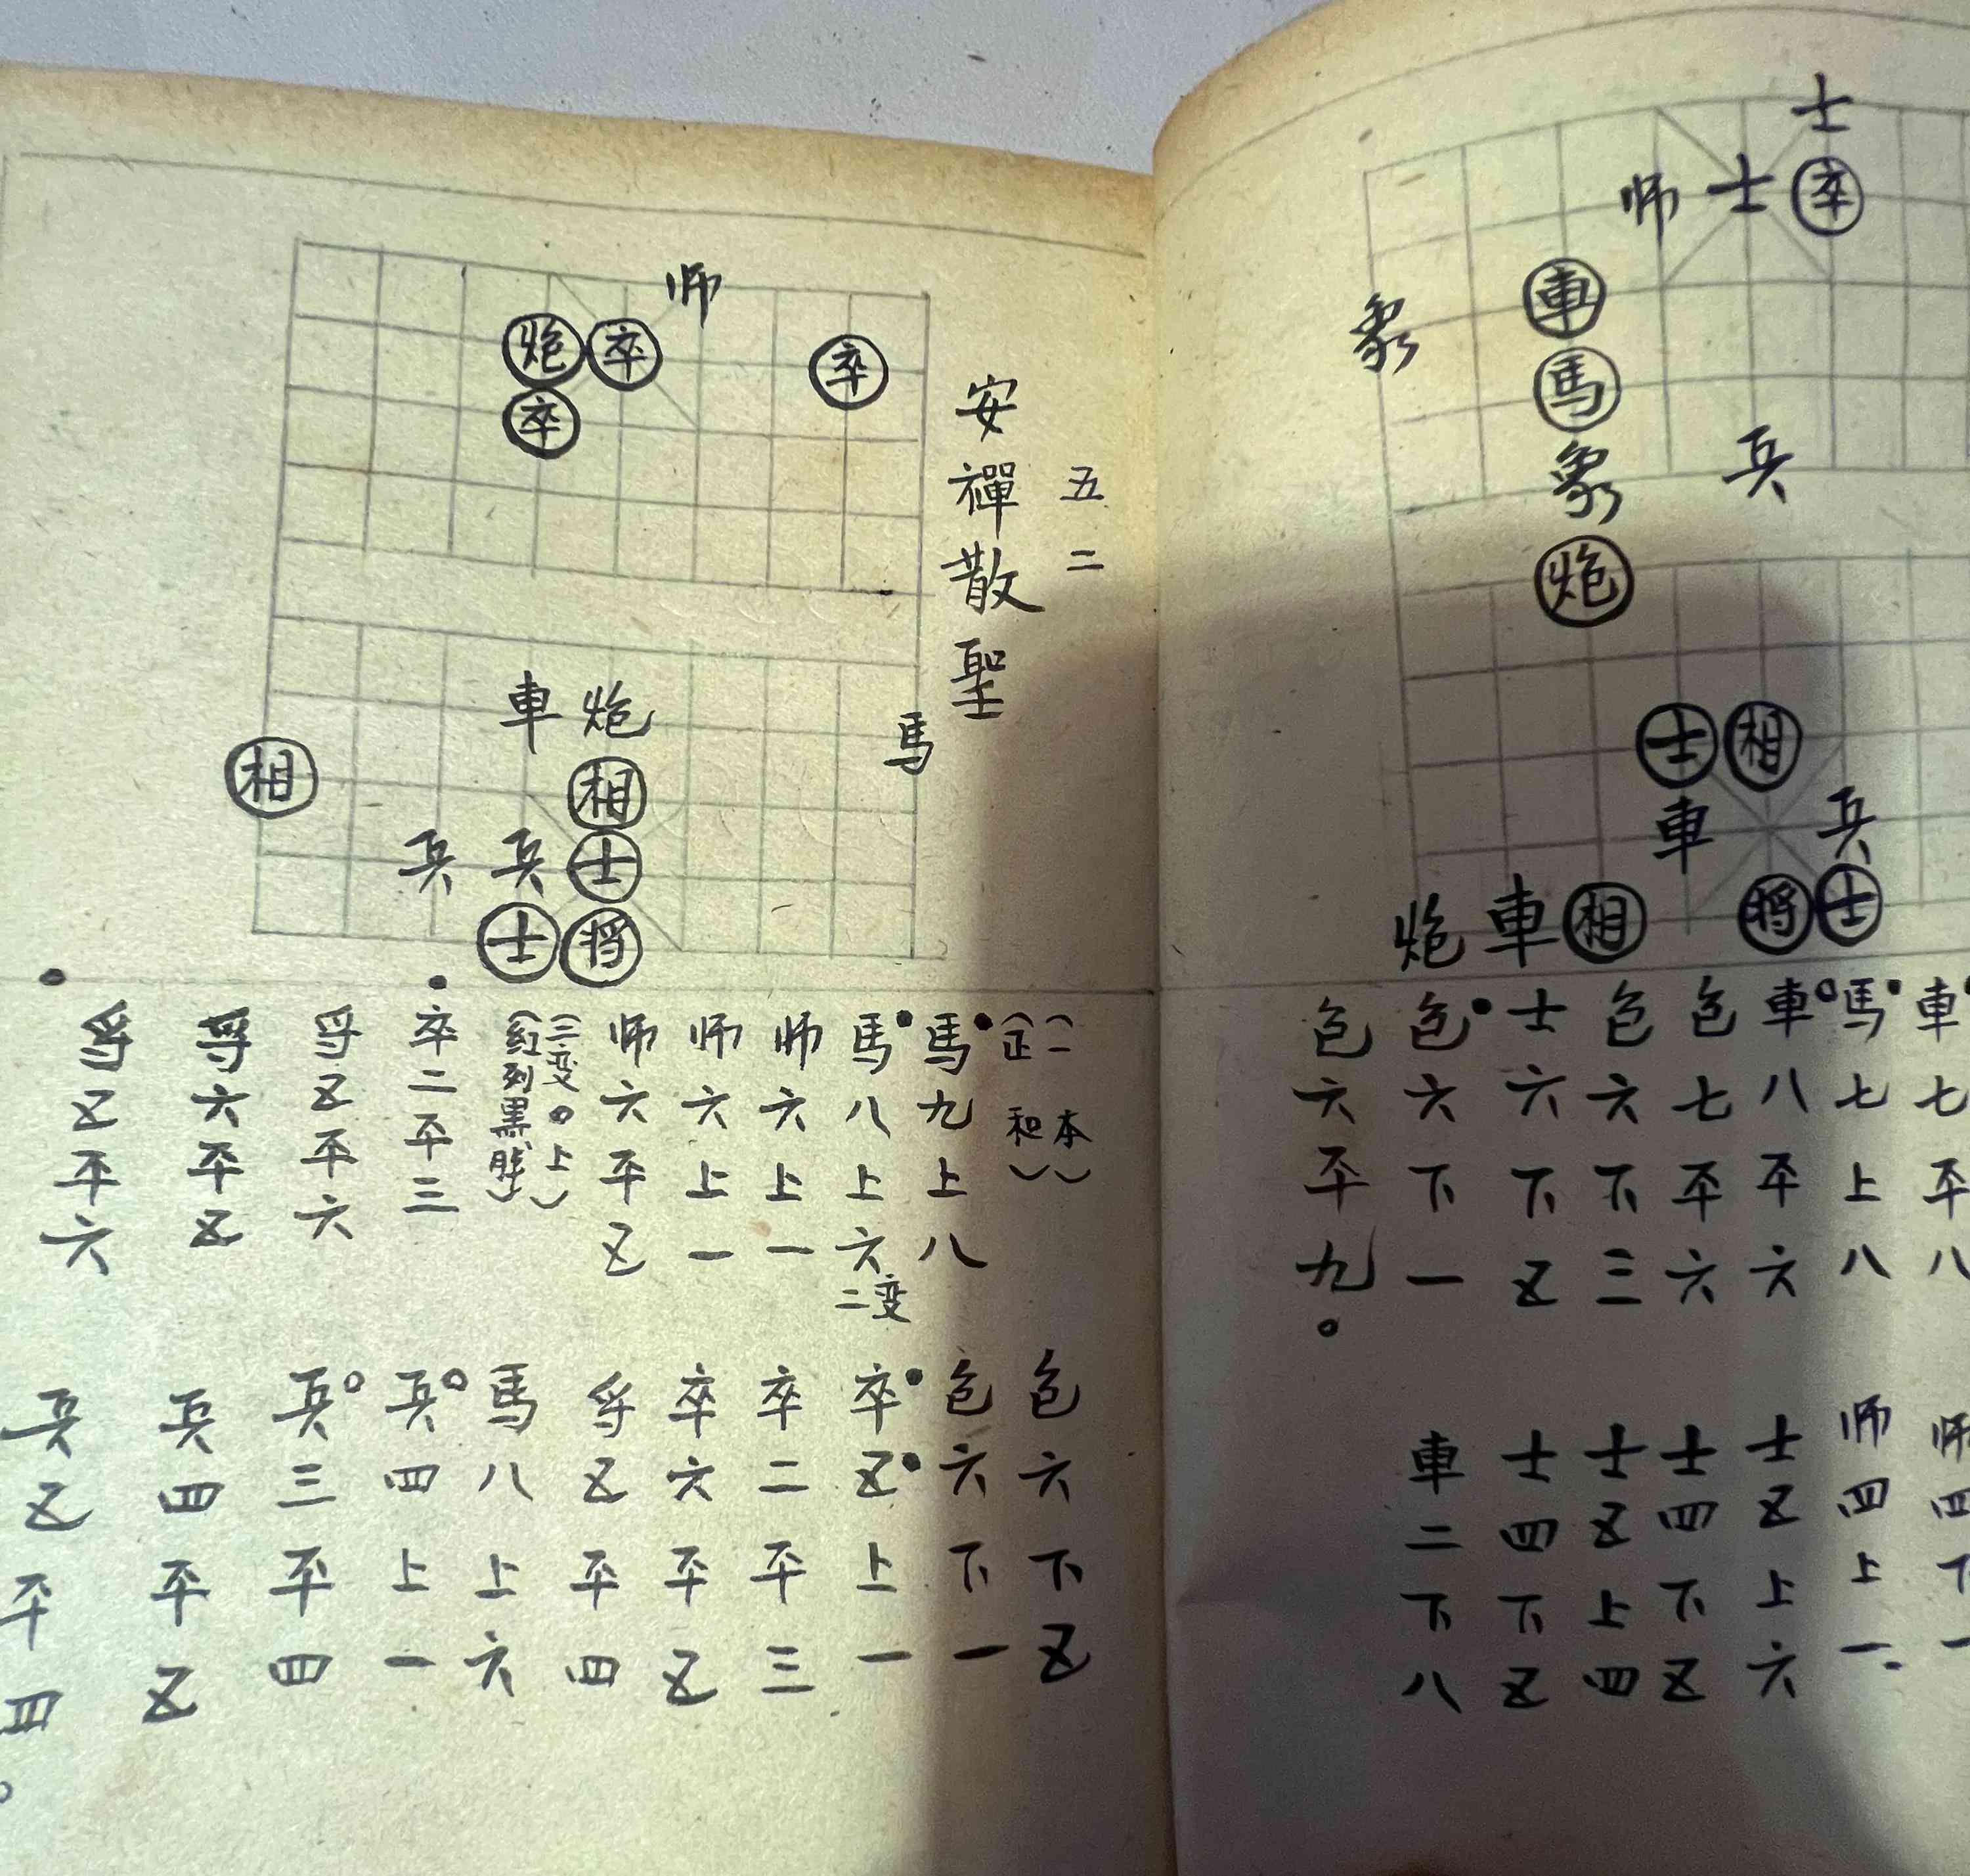 师
炮 卒
卒
卒
車 炮
馬
相
相
兵 兵 士
士 将
五二
安禪散聖
(一本)
(正和)
馬九上八
馬八上六
二变
师六上一
师六上一
师六平五
(三变。上)
(紅列黑勝)
卒二平三
将五平六
将六平五
将五平六
包六下五
包六下一
卒五上一
卒二平三
卒六平五
将五平四
馬八上六
兵四上一
兵三平四
兵四平五
兵五平四
士
师 士 卒
車
象
馬
象
兵
炮
士 相
車 兵
炮 車 相 将 士
車七平八
馬七上八
車八平六
包七平六
包六下三
士六下五
包六下一
包六平九。
师四下一
师四上一
士五上六
士四下五
士五上四
士四下五
車二下八